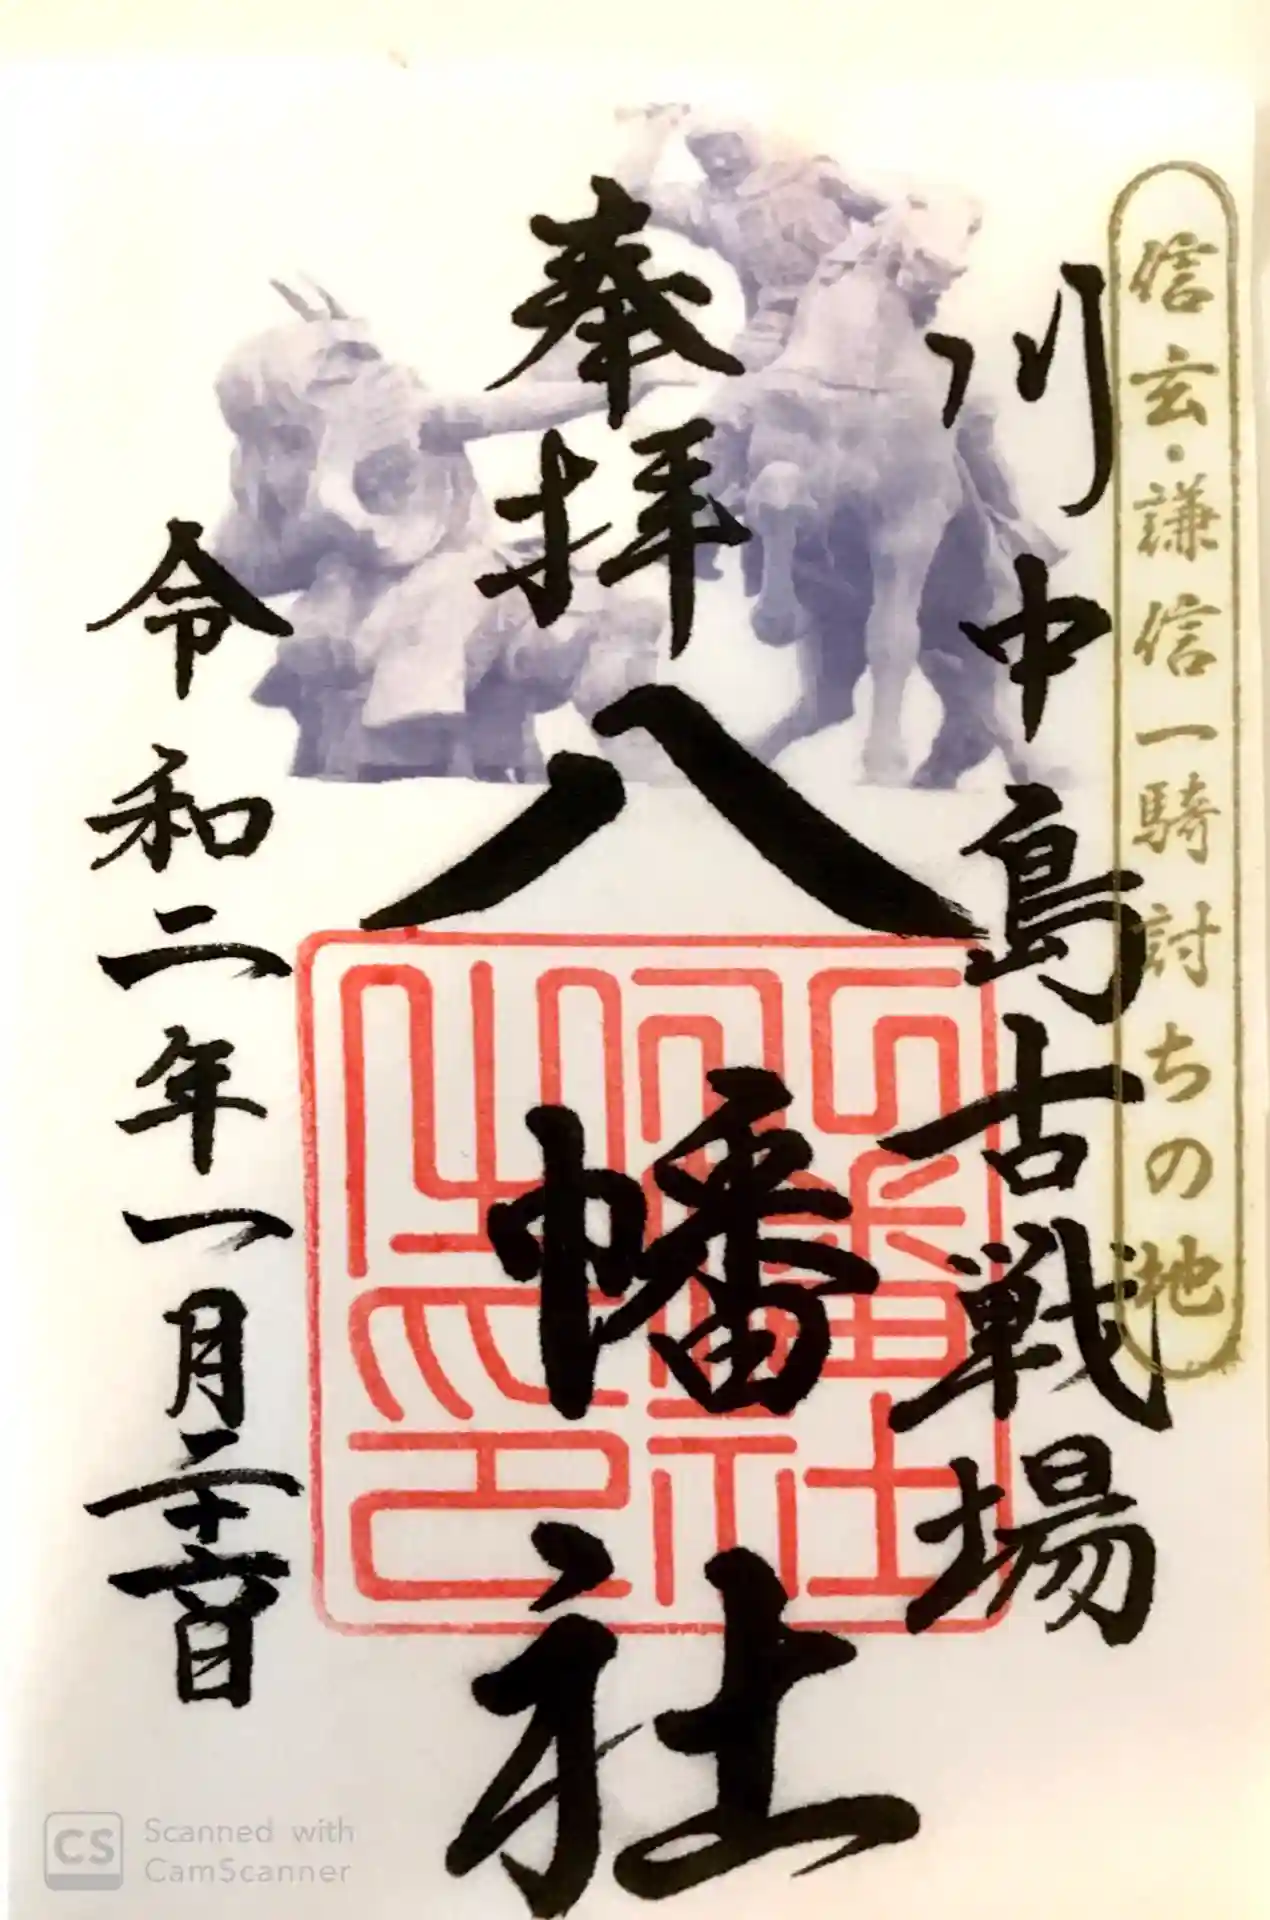 信玄・謙信一騎討ちの地
川中島古戦場
奉拝
八幡社
令和二年一月二十六日
Scanned with
CS
CamScanner